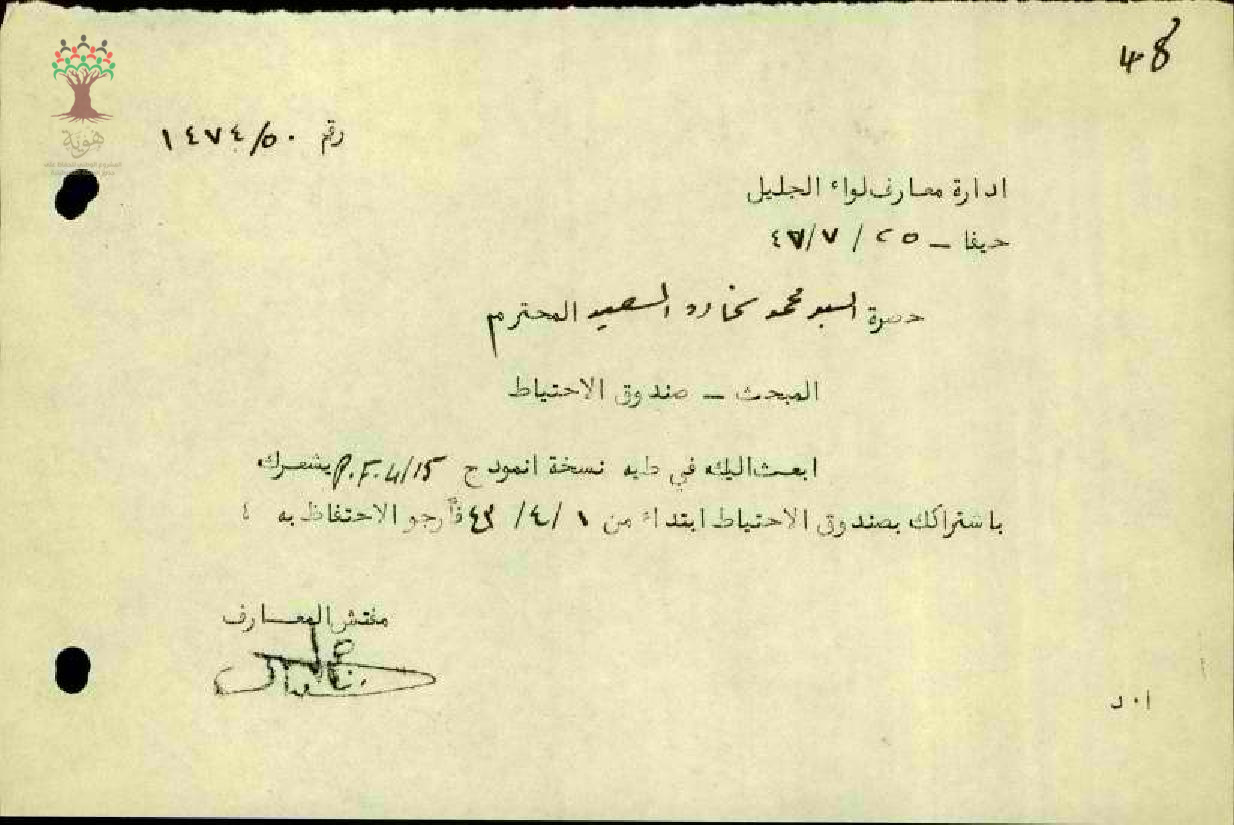 48
هوية
رقم ١٤٧٤/٥٠
ادارة معارف لواء الجليل
حيفا – ٢٥ / ٧/ ٤٧
حضرة السيد محمد السعيد المحترم
المبحث – صندوق الاحتياط
ابعث اليك في طيه نسخة انموذج P.F.4/15 يشعرك
باشتراكك بصندوق الاحتياط ابتداء من ١ /٤ / ٤٣ فأرجو الاحتفاظ به
مفتش المعارف
ا٠د